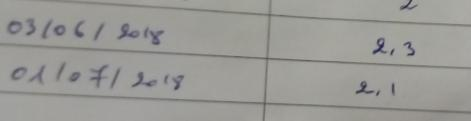 2
03/06/2018 2,3
01/07/2018 2,1